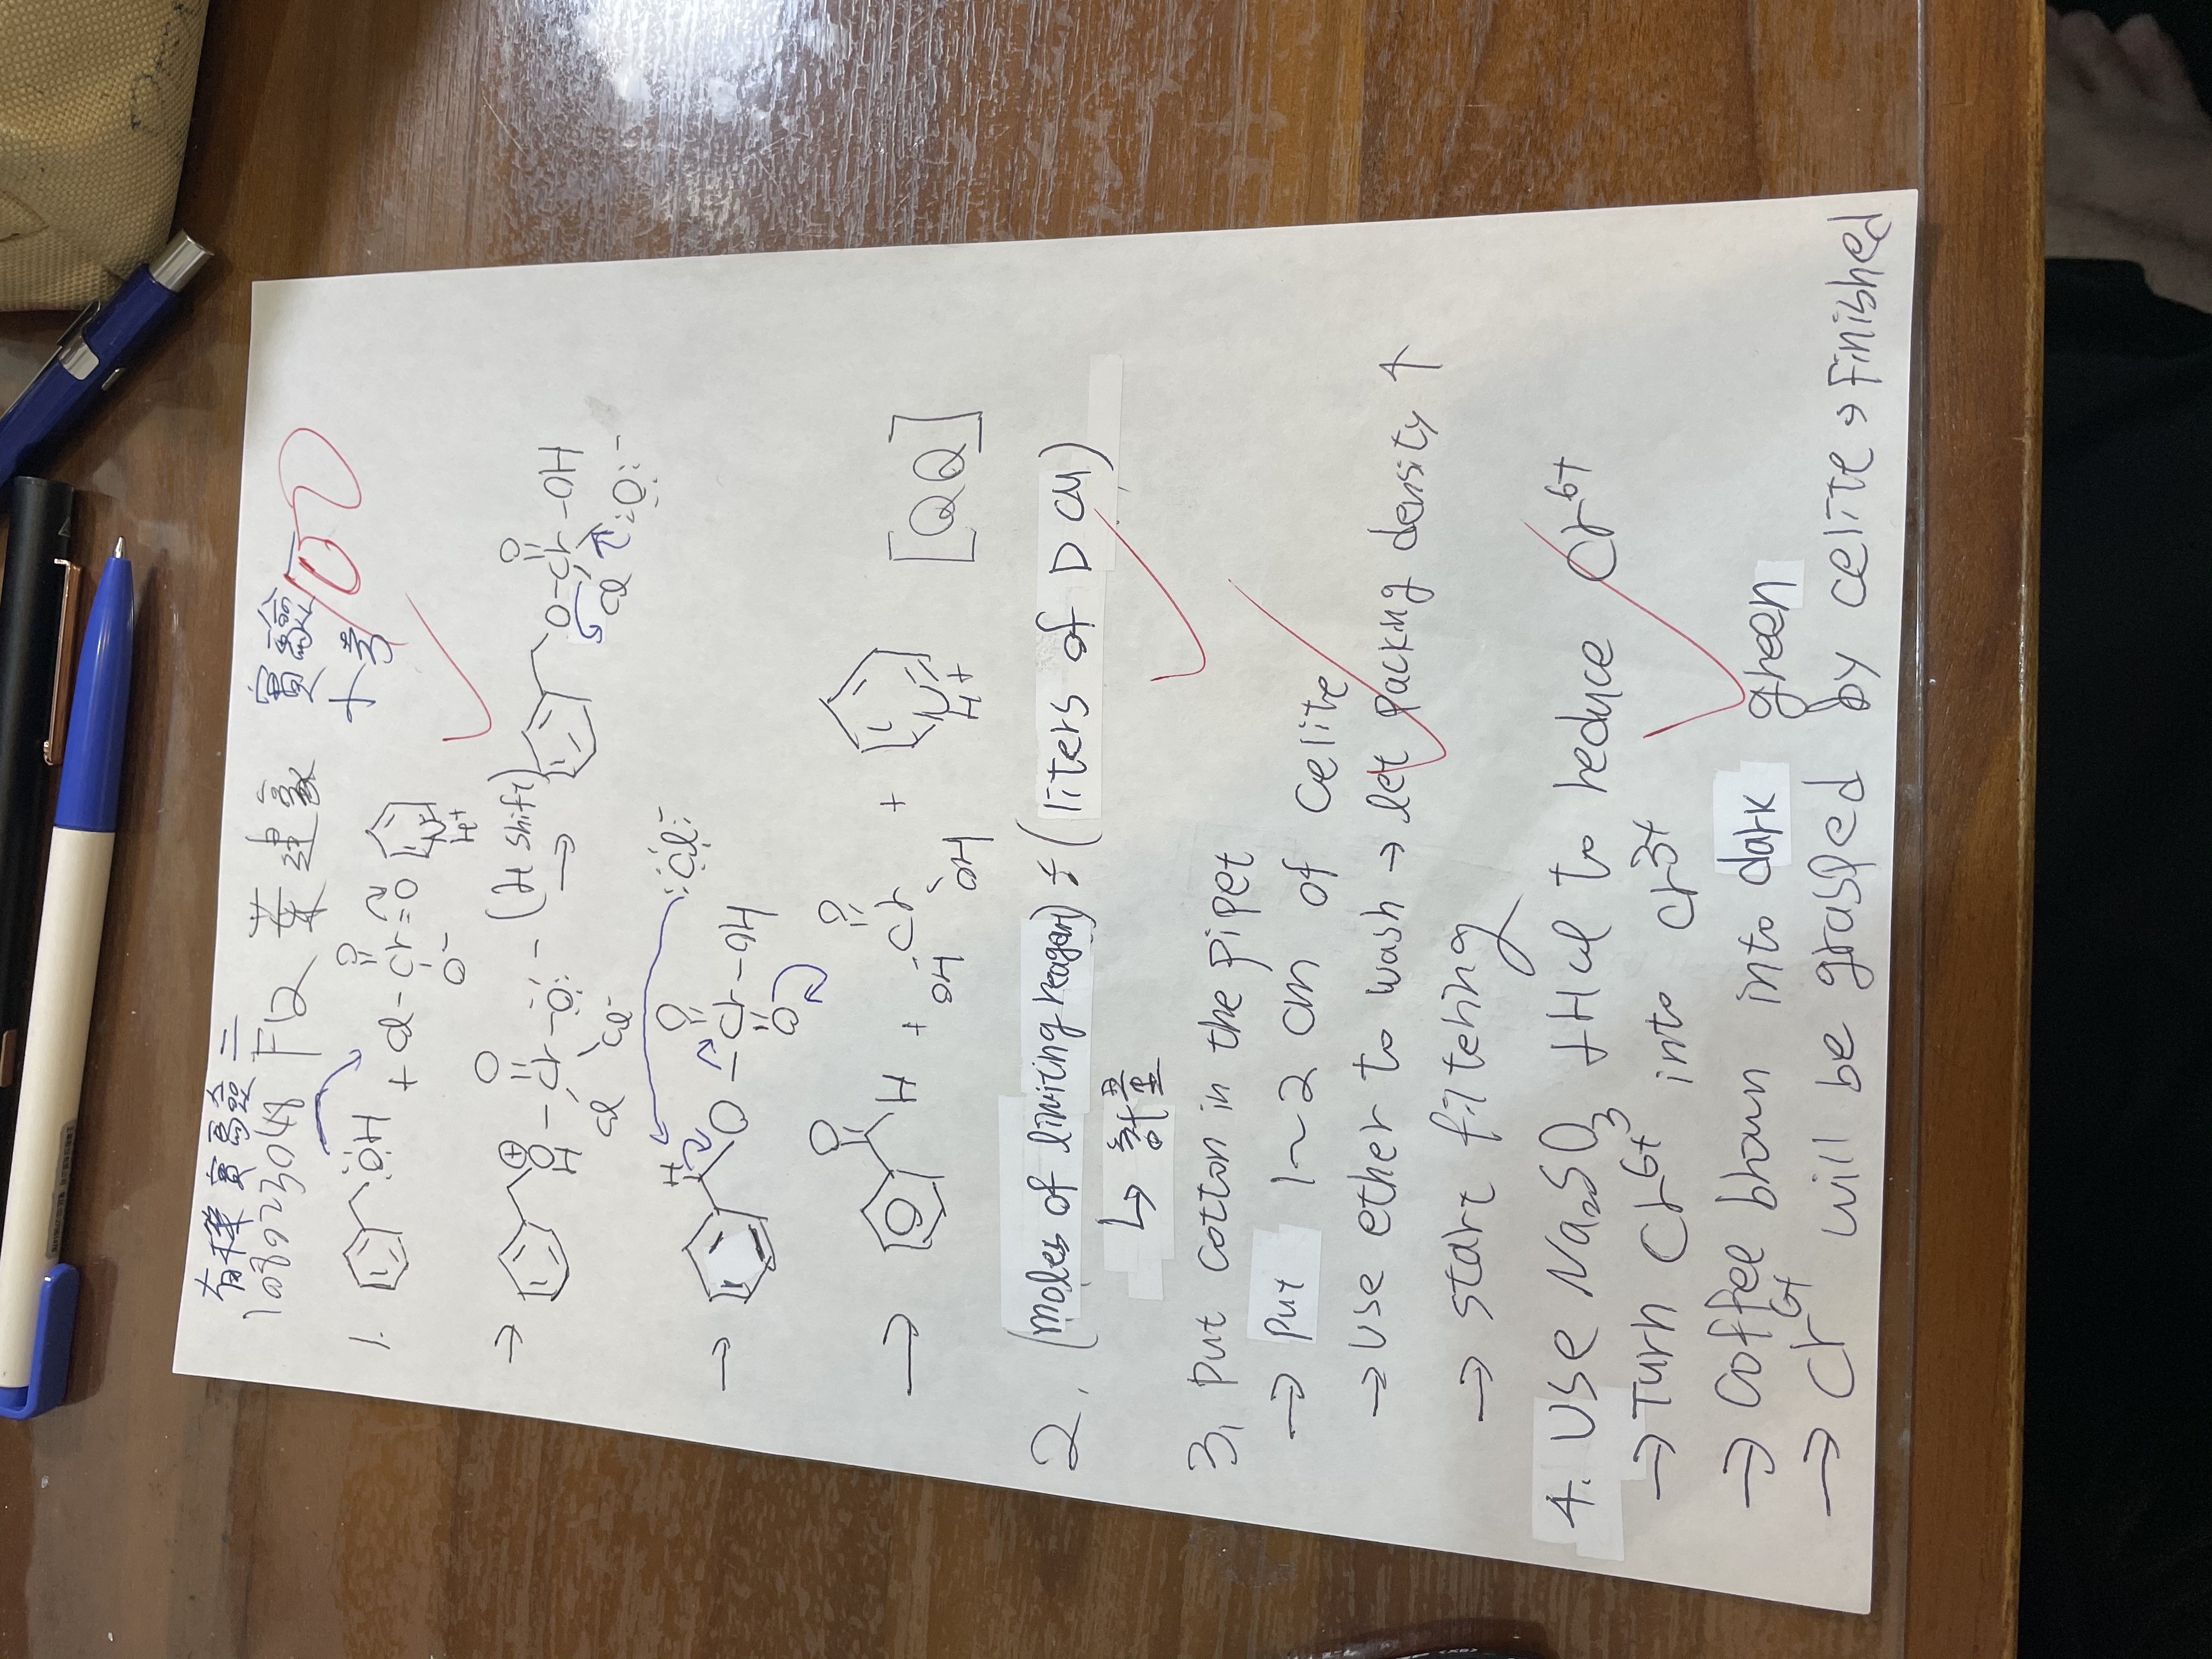 有機實驗二
108023048 葉建豪 實驗
十考 100
1. OH + Cl-Cr=O O O⁻ N H⁺
→ O⊕ H - Cr - O⁻ O Cl Cl⁻ (H shift) → O-Cr-OH O Cl O⁻
→ H O - Cr - OH O O Cl⁻
→ O H + O Cr OH OH + N H+ [QQ]
2. (moles of limiting reagent) ÷ (liters of DCM)
↳ 計量
3, Put cotton in the pipet
→ put 1~2 cm of celite
→ Use ether to wash → let packing density ↑
→ start filtering
4. Use Na₂SO₃ + HCl to reduce Cr⁶⁺
→ Turn Cr⁶⁺ into Cr³⁺
→ Coffee brown into dark green
→ Cr⁶⁺ will be grasped by celite → Finished